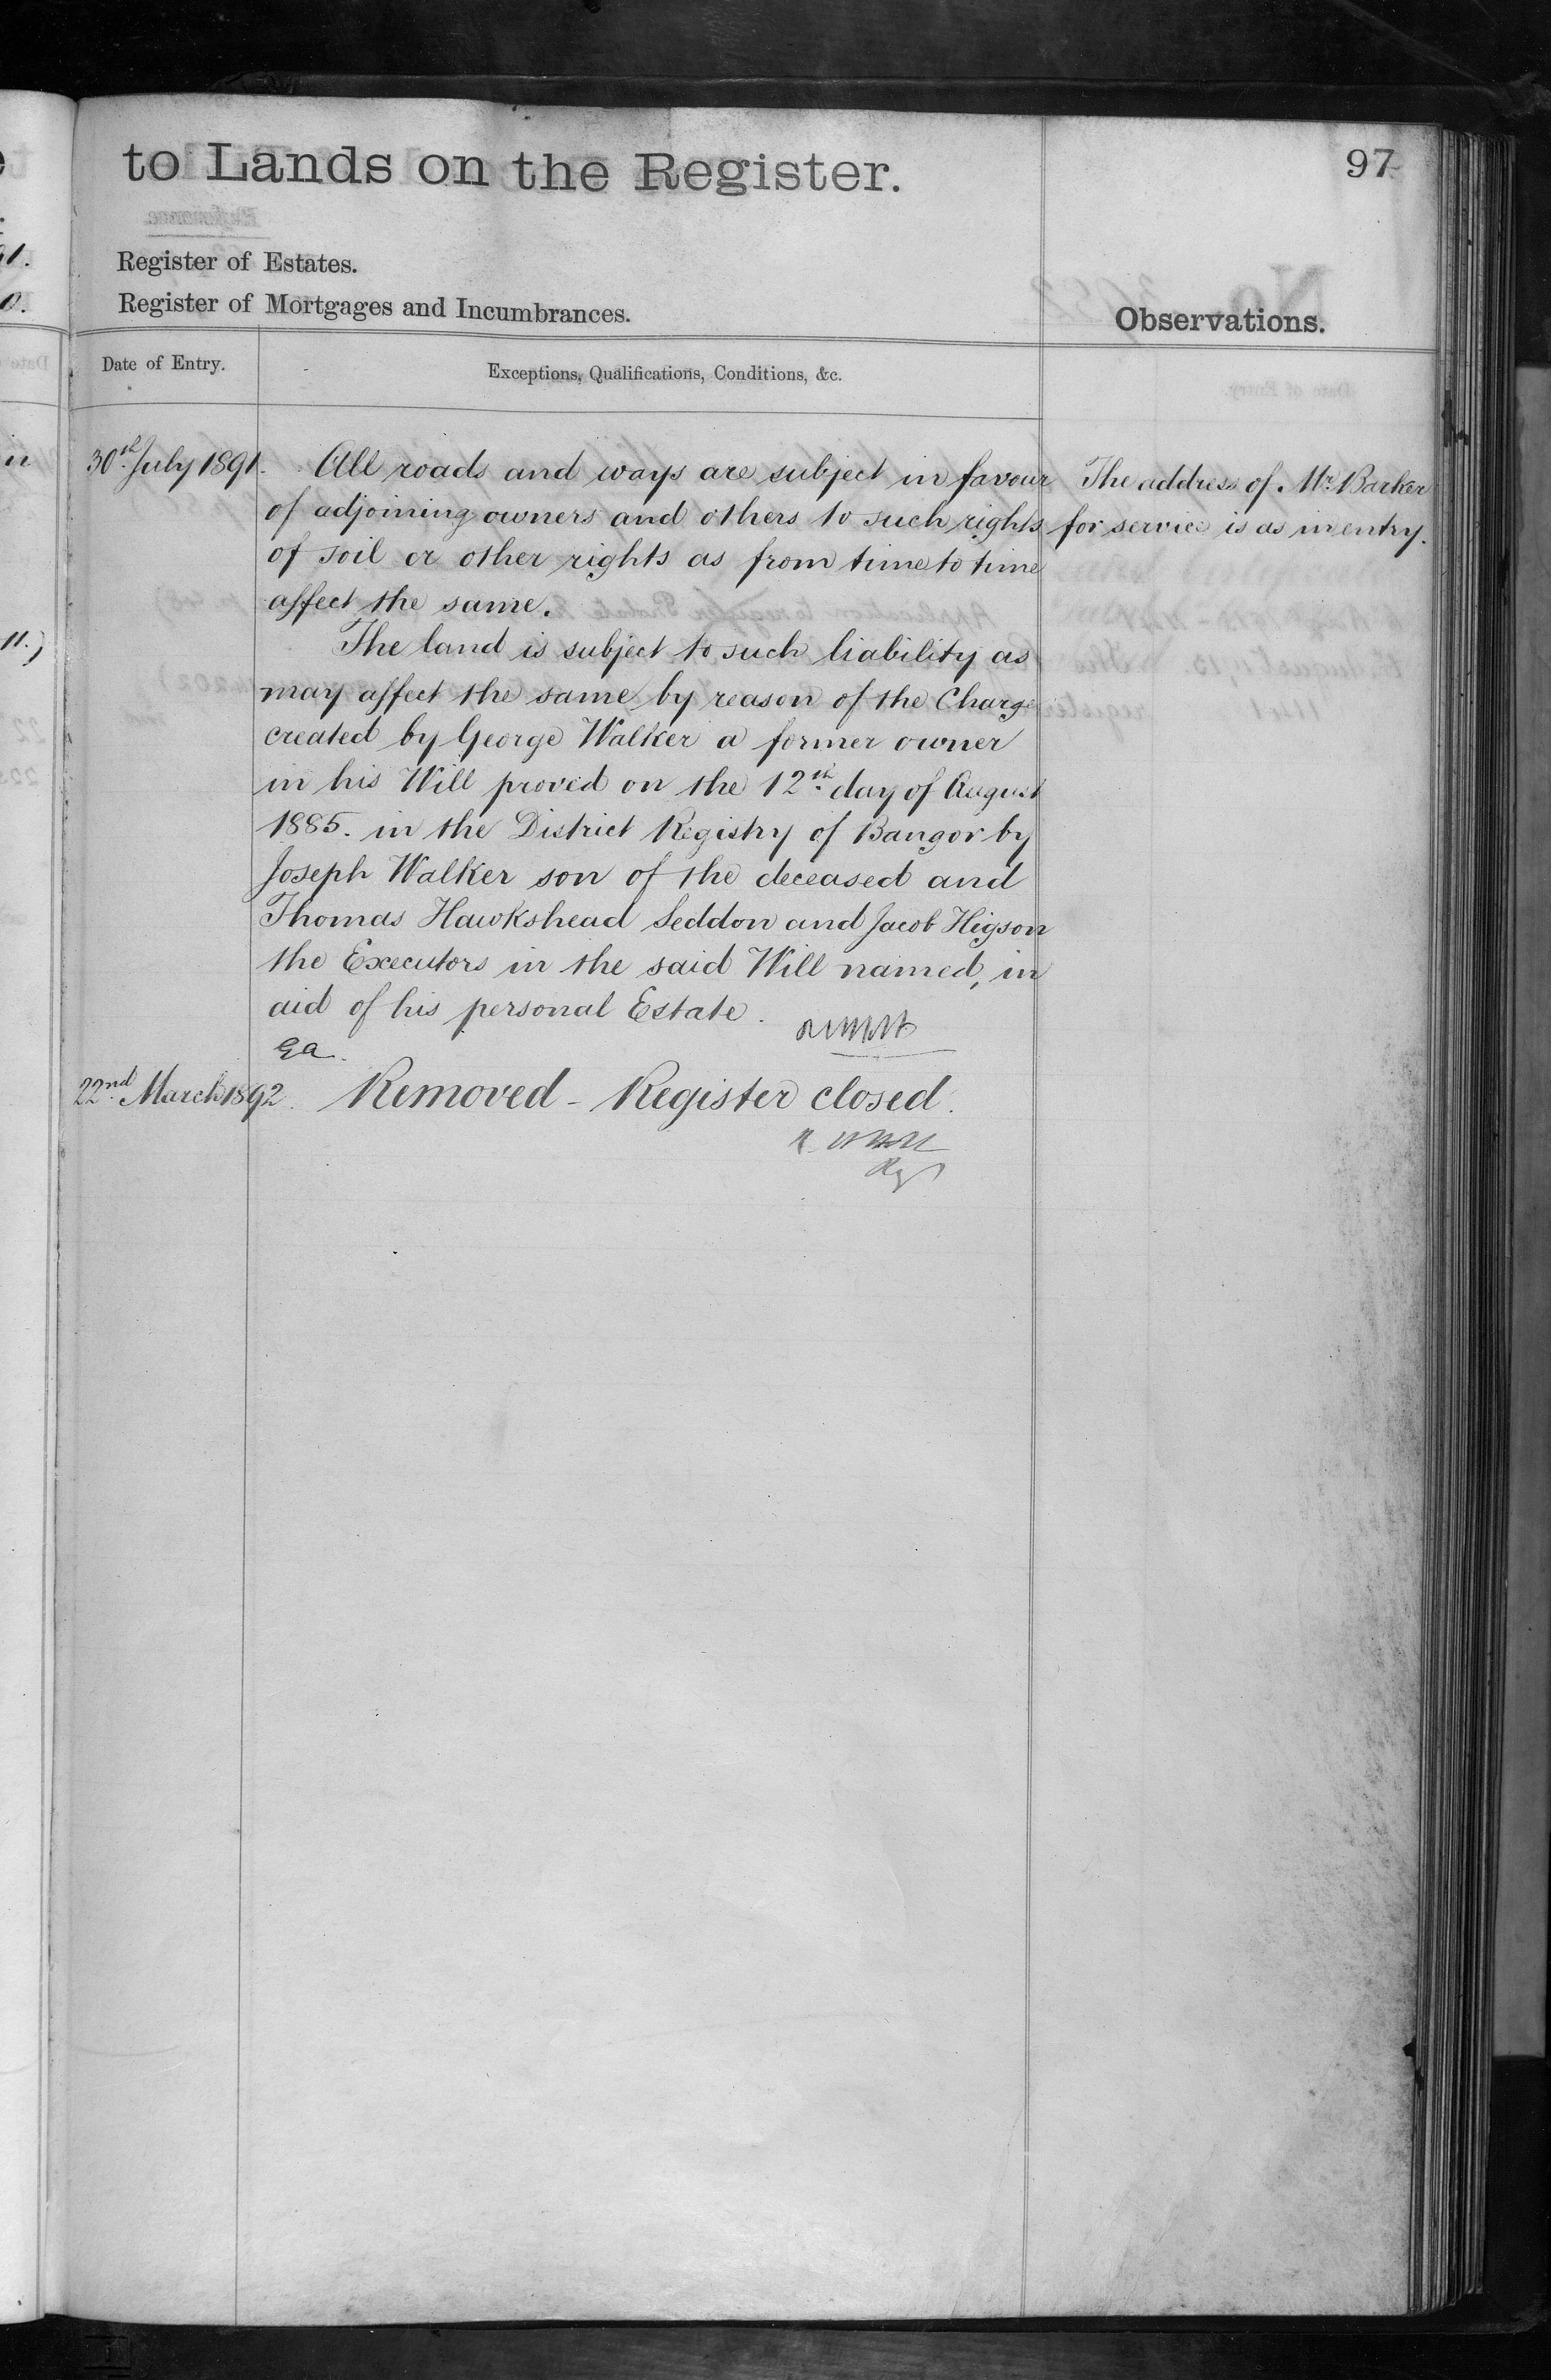 to Lands on the Register.
97
Register of Estates.
Register of Mortgages and Incumbrances.
Observations.
Date of Entry.
Exceptions, Qualifications, Conditions, &c.
30th July 1891.
All roads and ways are subject in favour
of adjoining owners and others to such rights
of soil or other rights as from time to time
affect the same.
The land is subject to such liability as
may affect the same by reason of the Charge
created by George Walker a former owner
in his Will proved on the 12th day of August
1885. in the District Registry of Bangor by
Joseph Walker son of the deceased and
Thomas Hawkshead Seddon and Jacob Higson
the Executors in the said Will named, in
aid of his personal Estate.
22nd March 1892. Removed - Register closed.
The address of Mr. Barker
for service is as in entry.